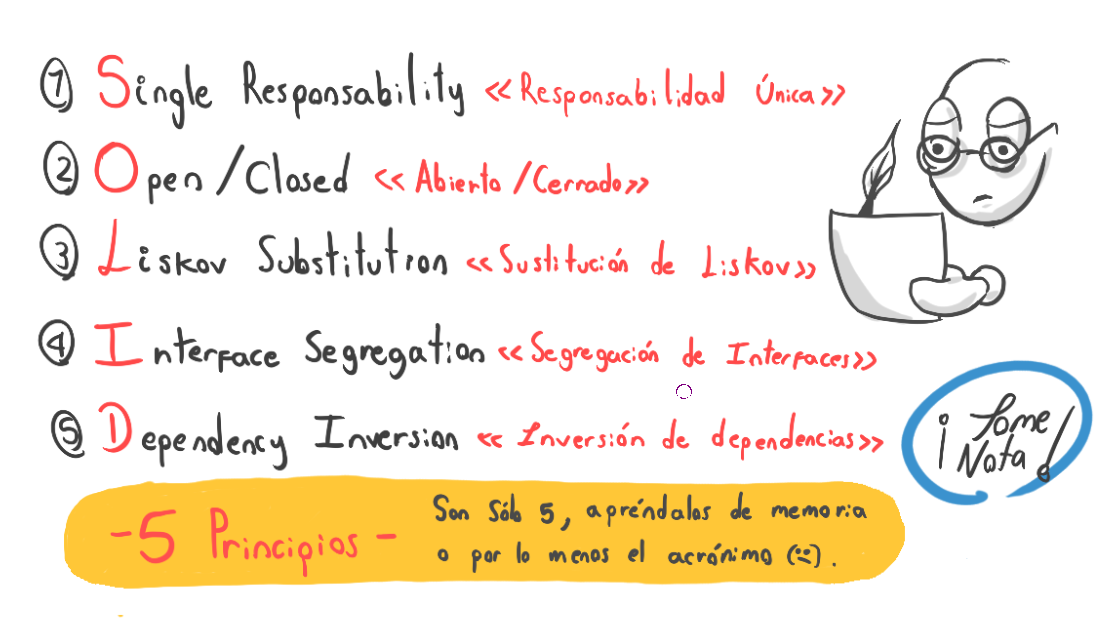 1 Single Responsability «Responsabilidad Única»
2 Open/Closed «Abierto/Cerrado»
3 Liskov Substitution «Sustitución de Liskov»
4 Interface Segregation «Segregación de Interfaces»
5 Dependency Inversion «Inversión de dependencias»
¡Tome
Nota!
-5 Principios-
Son Sólo 5, apréndalos de memoria
o por lo menos el acrónimo (:().